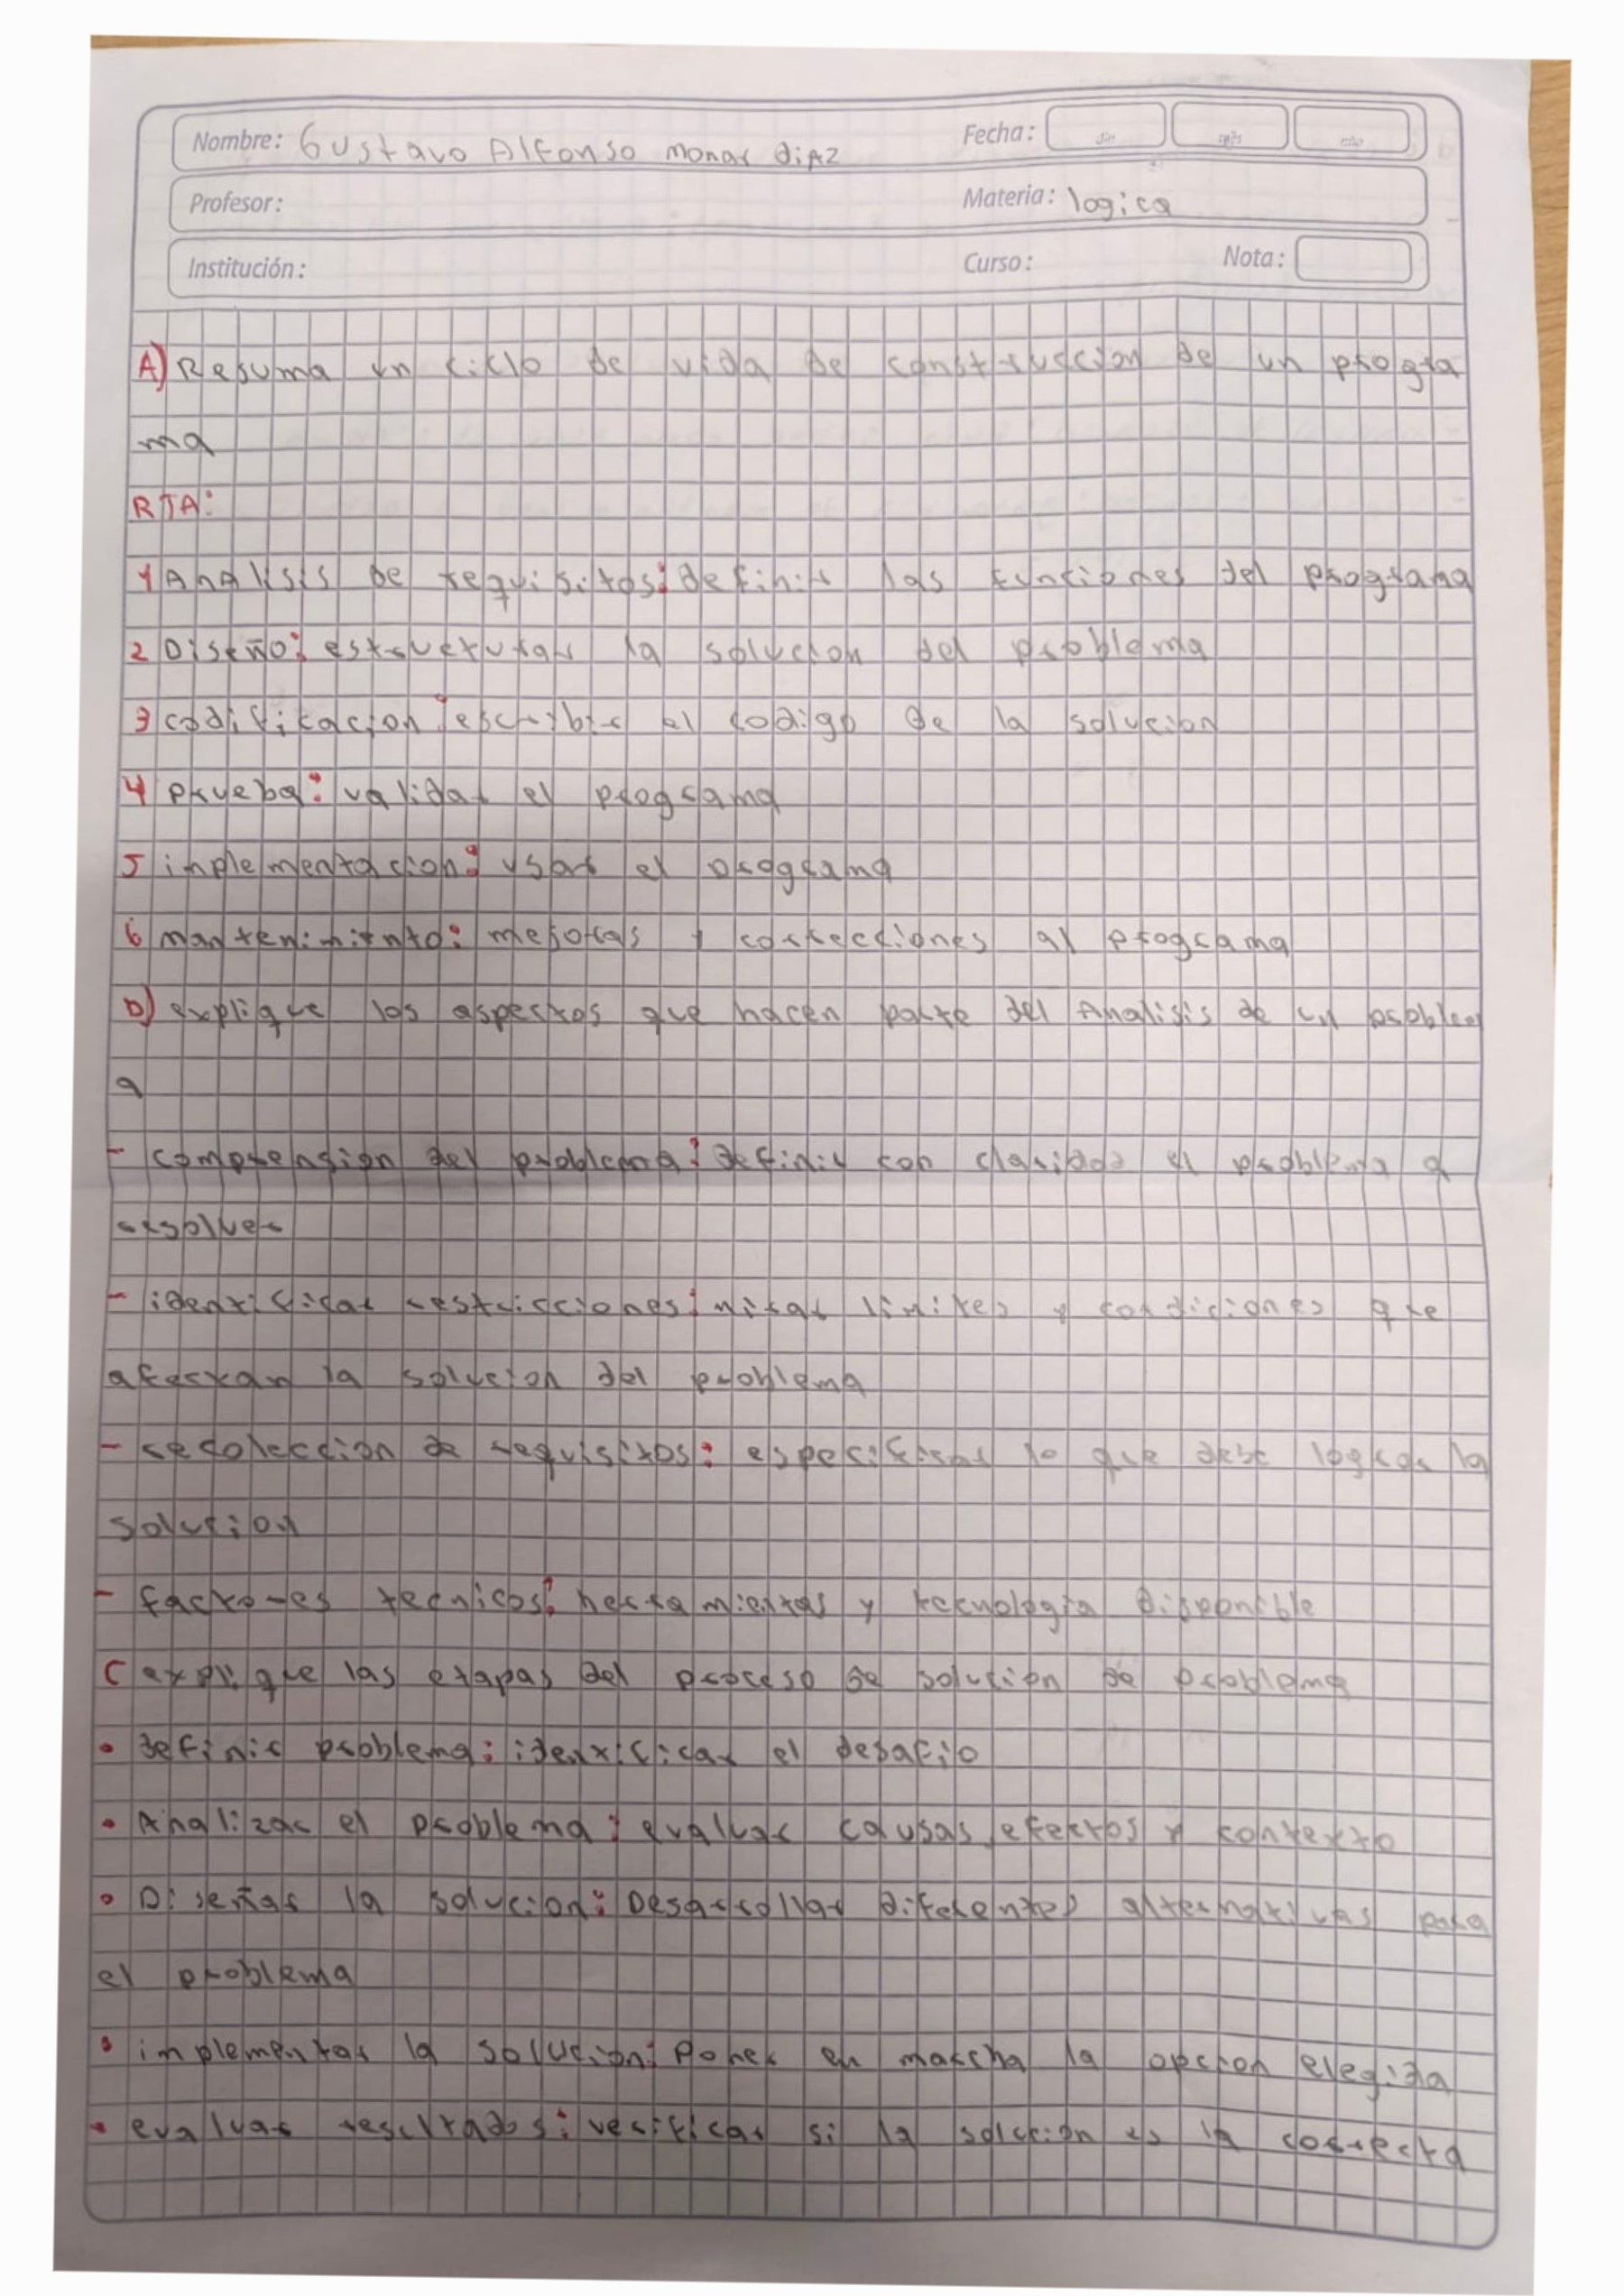 Nombre: Gustavo Alfonso monar diAz Fecha: día mes año
Profesor: Materia: logica
Institución: Curso: Nota:
A) Resuma un ciclo de vida de construccion de un progra
ma
RTA:
1 AnAlisis de requisitos: definir las funciones del programa
2 Diseño: estructurar la solucion del problema
3 codificacion: escribir el codigo de la solucion
4 prueba: validar el programa
5 inplementacion: usar el programa
6 mantenimiento: mejoras y correcciones al programa
b) explique los aspectos que hacen parte del Analisis de un problem
a
- comprension del problema: definir con claridad el problema a
resolver
- identificar restricciones: mirar limites y condiciones que
afectan la solucion del problema
- recoleccion de requisitos: especificar lo que debe lograr la
solucion
- factores tecnicos: herramientas y tecnologia disponible
C explique las etapas del proceso de solucion de problema
• definir problema: identificar el desafio
• Analizar el problema: evaluar causas, efectos y contexto
• Diseñar la solucion: Desarrollar diferentes alternativas para
el problema
• implementar la solucion: Poner en marcha la opcion elegida
• evaluar resultados: verificar si la solucion es la correcta